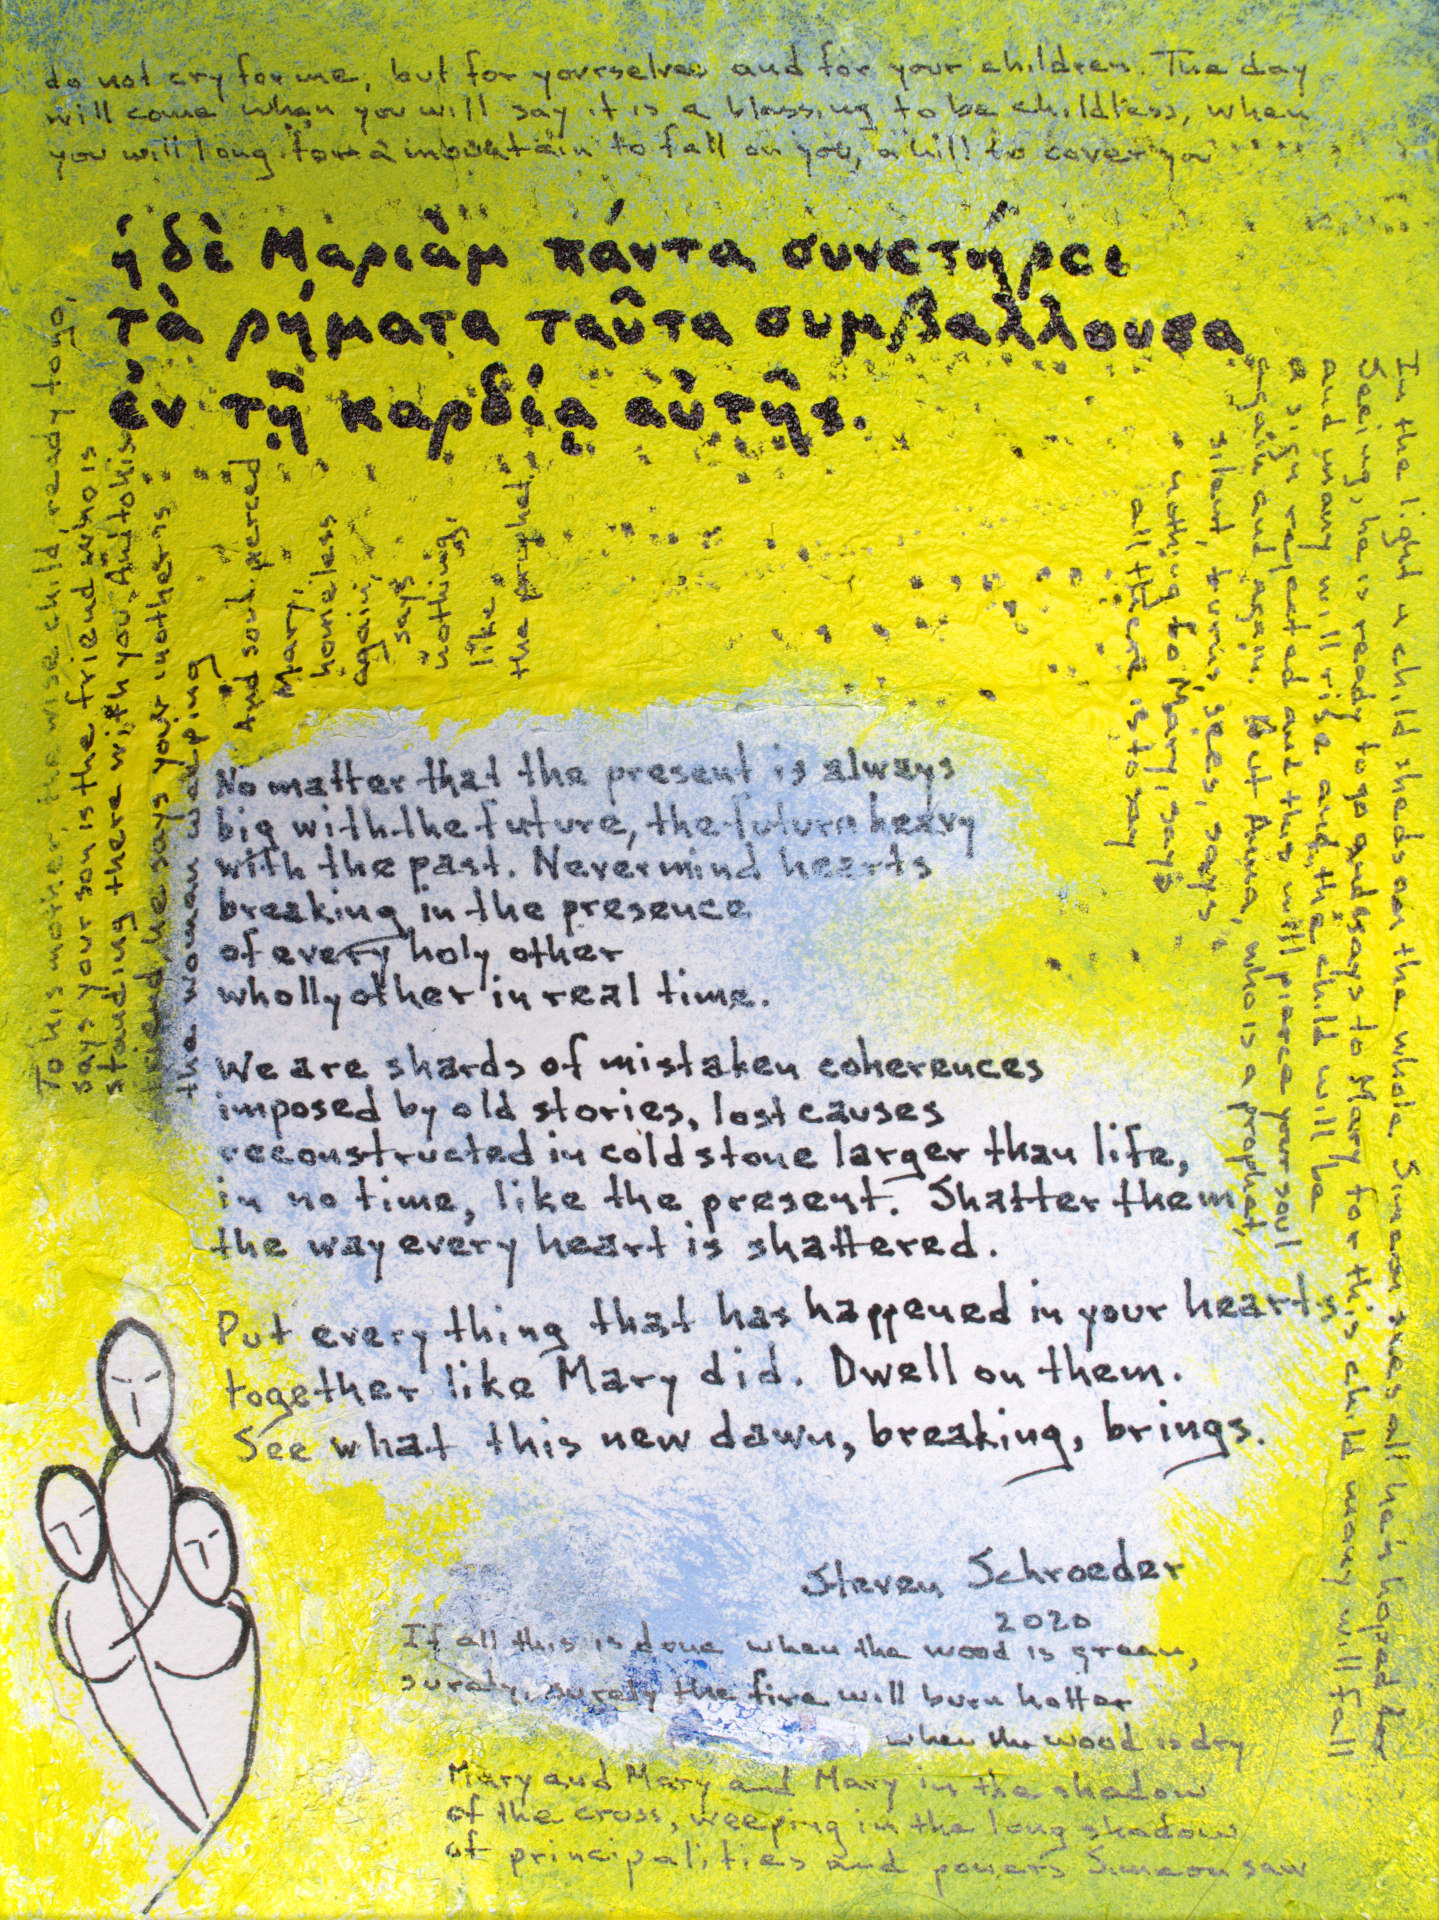 do not cry for me, but for yourselves and for your children. The day
will come when you will say it is a blessing to be childless, when
you will long for a mountain to fall on you, a hill to cover you
ἡ δὲ Μαριὰμ πάντα συνετήρει
τὰ ῥήματα ταῦτα συμβάλλουσα
ἐν τῇ καρδίᾳ αὐτῆς.
To his mother, the wise child, ready to go,
says your son is the friend who is
standing there with you. And to his
friend, he says your mother is
the woman weeping
And soul pierced
Mary,
homeless
again,
says
nothing,
like
the prophet.
In the light a child sheds on the whole Simeon sees all he's hoped for.
Seeing, he is ready to go and says to Mary for this child many will fall
and many will rise and the child will be
a sign rejected and this will pierce your soul
again and again. But Anna, who is a prophet,
silent, turns, sees, says
nothing to Mary, says
all there is to say
No matter that the present is always
big with the future, the future heavy
with the past. Nevermind hearts
breaking in the presence
of every holy other
wholly other in real time.
We are shards of mistaken coherences
imposed by old stories, lost causes
reconstructed in cold stone larger than life,
in no time, like the present. Shatter them
the way every heart is shattered.
Put everything that has happened in your hearts
together like Mary did. Dwell on them.
See what this new dawn, breaking, brings.
Steven Schroeder
2020
If all this is done when the wood is green,
surely, surely the fire will burn hotter
when the wood is dry
Mary and Mary and Mary in the shadow
of the cross, weeping in the long shadow
of principalities and powers Simeon saw